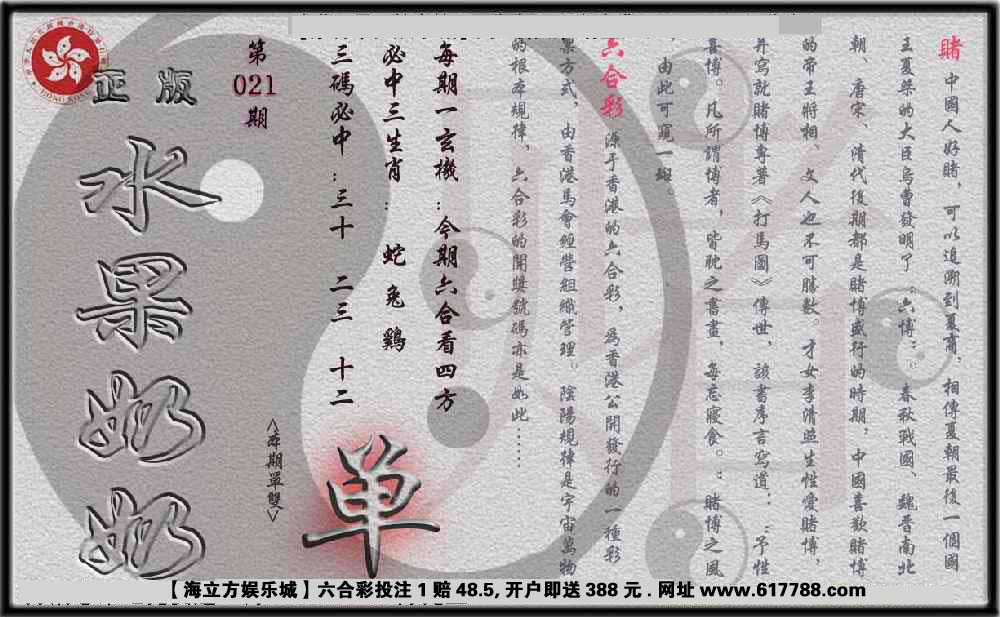 正版
水果奶奶
第
021
期
每期一玄機:今期六合看四方
必中三生肖: 蛇 兔 鷄
三碼必中:三十 二三 十二
<本期單雙>
单
賭 中國人好賭,可以追溯到夏商.相傳夏朝最後一個國
王夏桀的大臣烏曹發明了:六博:.春秋戰國、魏晋南北
朝、唐宋、清代後期都是賭博盛行的時期,中國喜歡賭博
的帝王將相、文人也不可勝數。才女李清照生性愛賭博,
并寫就賭博專著《打馬圖》傳世,該書序言寫道::予性
喜博。凡所謂博者,皆耽之晝,每忘寢食。:賭博之風
,由此可窺一斑。
六合彩 源于香港的六合彩,爲香港公開發行的一種彩
票方式,由香港馬會經營組織管理。陰陽規律是宇宙萬物
的根本規律,六合彩的開獎號碼亦是如此......
【海立方娱乐城】六合彩投注 1 赔 48.5, 开户即送 388 元 . 网址 www.617788.com